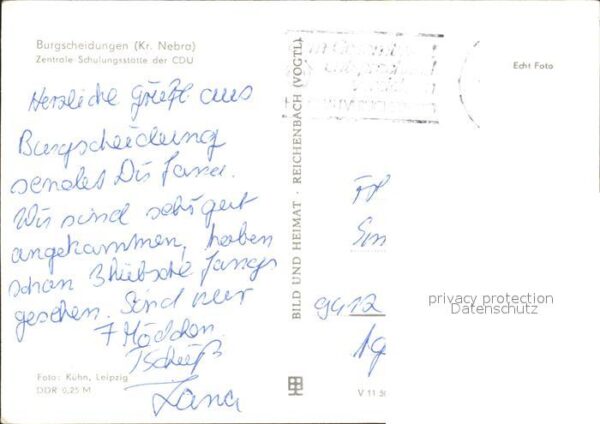 Burgscheidungen (Kr. Nebra)
Zentrale Schulungsstätte der CDU
Herzliche Grüße aus
Burgscheidung
sendet Dir Jana.
Wir sind sehr gut
angekommen, haben
schon 3 hübsche Jungs
gesehen. Sind nur
7 Mädchen.
Tschüß
Jana
Foto: Kühn, Leipzig
DDR 0,25 M
BILD UND HEIMAT · REICHENBACH (VOGTL)
Echt Foto
9412
privacy protection
Datenschutz
V 11 50